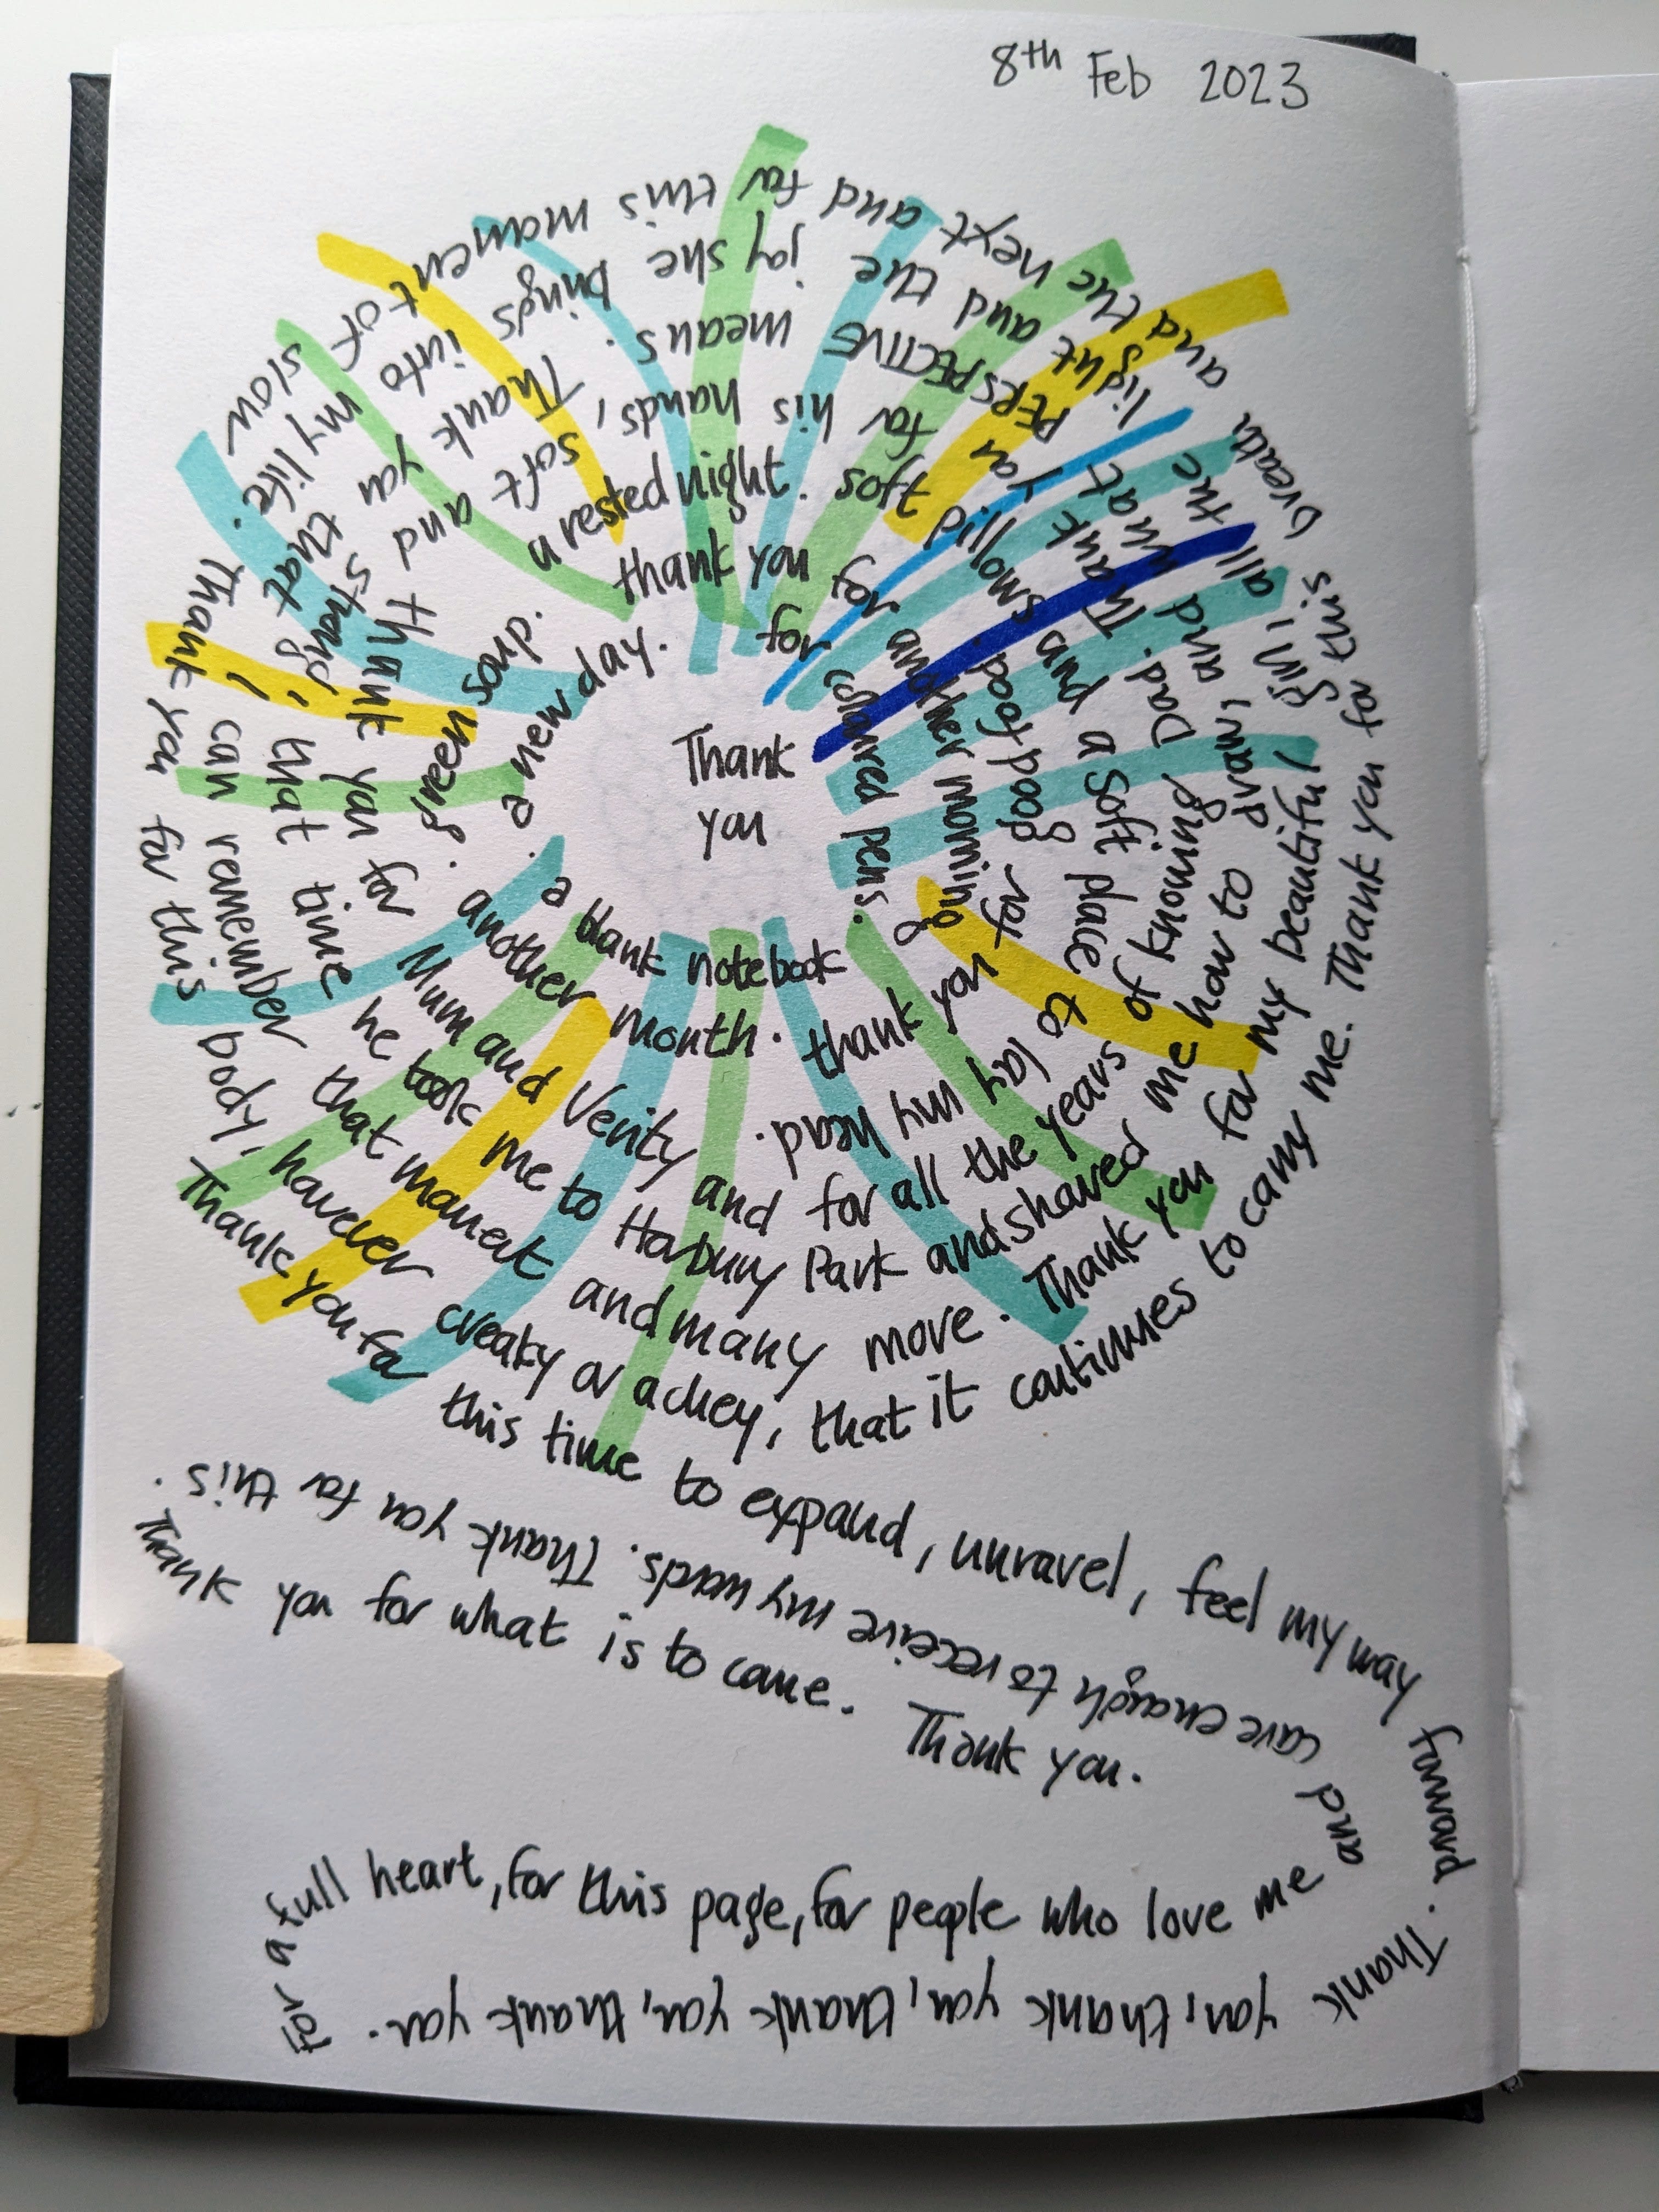 8th Feb 2023
Thank you
for coloured pens.
a blank notebook.
a new day.
thank you for another morning
another month.
green soup.
a rested night.
thank you for good food.
soft pillows and a soft place to lay my head.
and thank you for Mum and Verity and for all the years of knowing Dad. Thank you for his hands, soft and strong, that time he took me to Horbury Park and showed me how to draw, and what PERSPECTIVE means. Thank you that I can remember that moment and many more. Thank you for my beautiful girl, all the light and the joy she brings into my life. Thank you for this body, however creaky or achey, that it continues to carry me. Thank you for this breath and the next and for this moment of slow
Thank you for this time to expand, unravel, feel my way forward.
Thank you, thank you, thank you, thank you.
For a full heart, for this page, for people who love me and care enough to receive my words. Thank you for this.
Thank you for what is to come. Thank you.